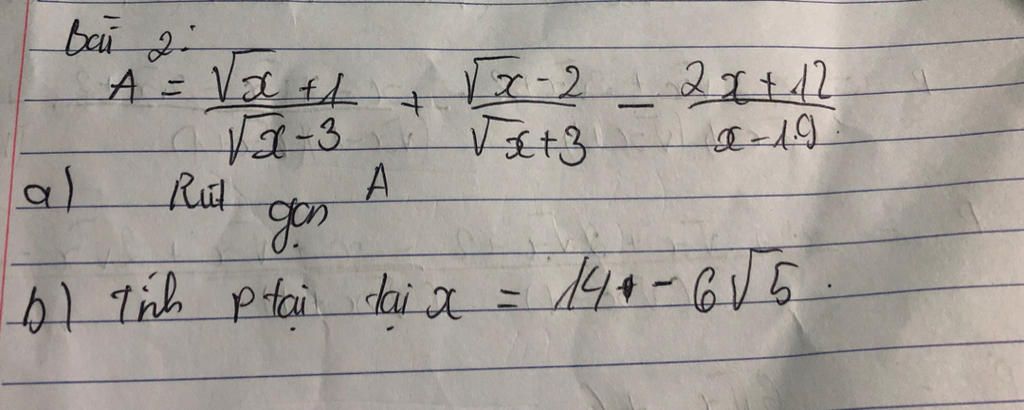 Bài 2:
A = (√x + 1)/(√x - 3) + (√x - 2)/(√x + 3) - (2x + 12)/(x - 19)
a) Rút gọn A
b) Tính P tại tại x = 14 - 6√5.